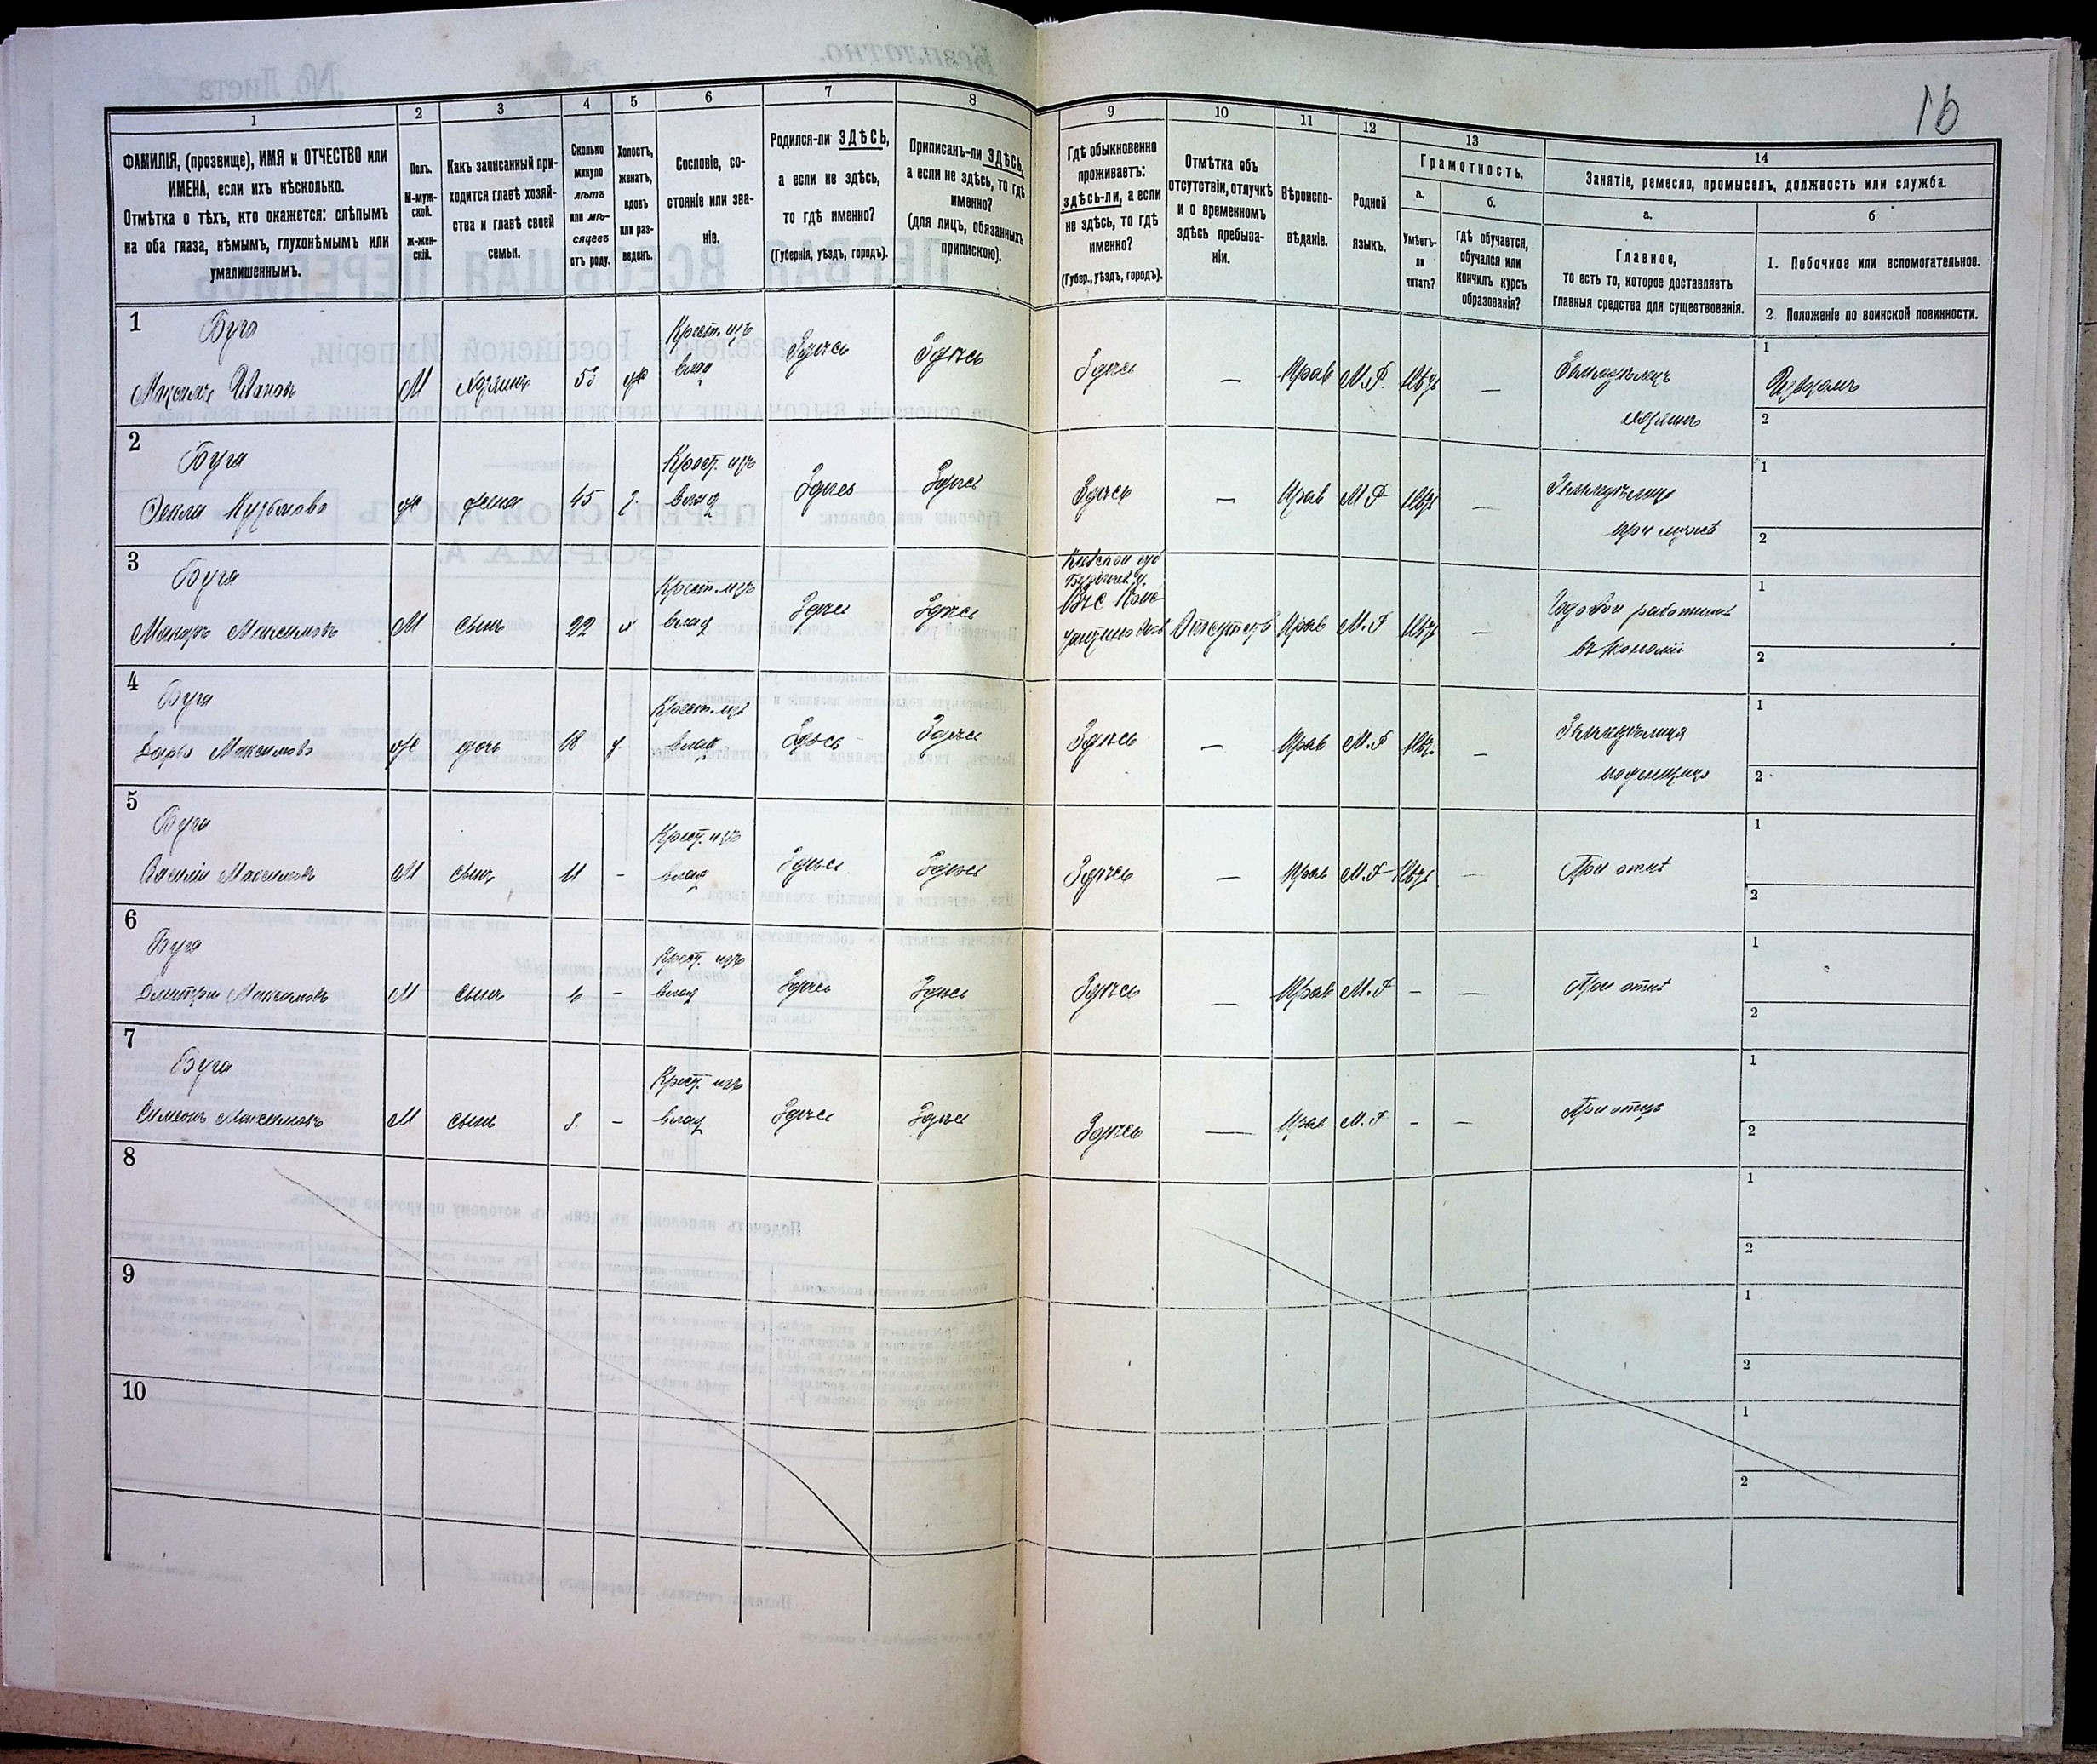 16
1
2
3
4
5
6
7
8
9
10
11
12
13
14
ФАМИЛІЯ, (прозвище), ИМЯ и ОТЧЕСТВО или
ИМЕНА, если ихъ нѣсколько.
Отмѣтка о тѣхъ, кто окажется: слѣпымъ
на оба глаза, нѣмымъ, глухонѣмымъ или
умалишеннымъ.
Полъ.
М-муж-
ской.
ж-жен-
скій.
Какъ записанный при-
ходится главѣ хозяй-
ства и главѣ своей
семьи.
Сколько
минуло
лѣтъ
или мѣ-
сяцевъ
отъ роду.
Холостъ,
женатъ,
вдовъ
или раз-
веденъ.
Сословіе, со-
стояніе или зва-
ніе.
Родился-ли ЗДѢСЬ,
а если не здѣсь,
то гдѣ именно?
(Губернія, уѣздъ, городъ).
Приписанъ-ли ЗДѢСЬ,
а если не здѣсь, то гдѣ
именно?
(для лицъ, обязанныхъ
припискою).
Гдѣ обыкновенно
проживаетъ:
здѣсь-ли, а если
не здѣсь, то гдѣ
именно?
(Губер., уѣздъ, городъ).
Отмѣтка объ
отсутствіи, отлучкѣ
и о временномъ
здѣсь пребыва-
ніи.
Вѣроиспо-
вѣданіе.
Родной
языкъ.
Грамотность.
а.
Умѣетъ-
ли
читать?
б.
Гдѣ обучается,
обучался или
кончилъ курсъ
образованія?
Занятіе, ремесло, промыселъ, должность или служба.
а.
Главное,
то есть то, которое доставляетъ
главныя средства для существованія.
б
1. Побочное или вспомогательное.
2. Положеніе по воинской повинности.
1
Буга Крест. изъ
Максимъ Ивановъ М хозяинъ 53 ж влад Здѣсь Здѣсь Здѣсь — Прав М.Р. нѣтъ — Земледѣлецъ
хозяинъ
1
2
2
Буга Крест. изъ
Кузьмова ж жена 45 з. влад Здѣсь Здѣсь Здѣсь — Прав М.Р нѣтъ — Земледѣлица
при мужѣ
1
2
3
Буга Крест. изъ Кіевской губ
Макаръ Максимовъ М сынъ 22 х влад Здѣсь Здѣсь Отсутств Прав М.Р нѣтъ — Годовой работникъ
въ экономіи
1
2
4
Буга Крест. изъ
Дарья Максимова ж дочь 18 д. влад Здѣсь Здѣсь Здѣсь — Прав М.Р нѣтъ — Земледѣлица
поденщица
1
2
5
Буга Крест. изъ
Василій Максимовъ М сынъ 11 - влад Здѣсь Здѣсь Здѣсь — Прав М.Р нѣтъ — При отцѣ
1
2
6
Буга Крест. изъ
Дмитрій Максимовъ М сынъ 6 - влад Здѣсь Здѣсь Здѣсь — Прав М.Р - — При отцѣ
1
2
7
Буга Крест. изъ
Симеонъ Максимовъ М сынъ - влад Здѣсь Здѣсь Здѣсь — Прав М.Р - — При отцѣ
1
2
8
1
2
9
1
2
10
1
2